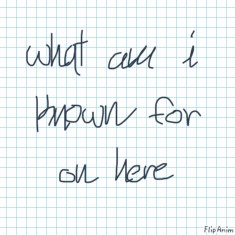 what am i
known for
on here
FlipAnim